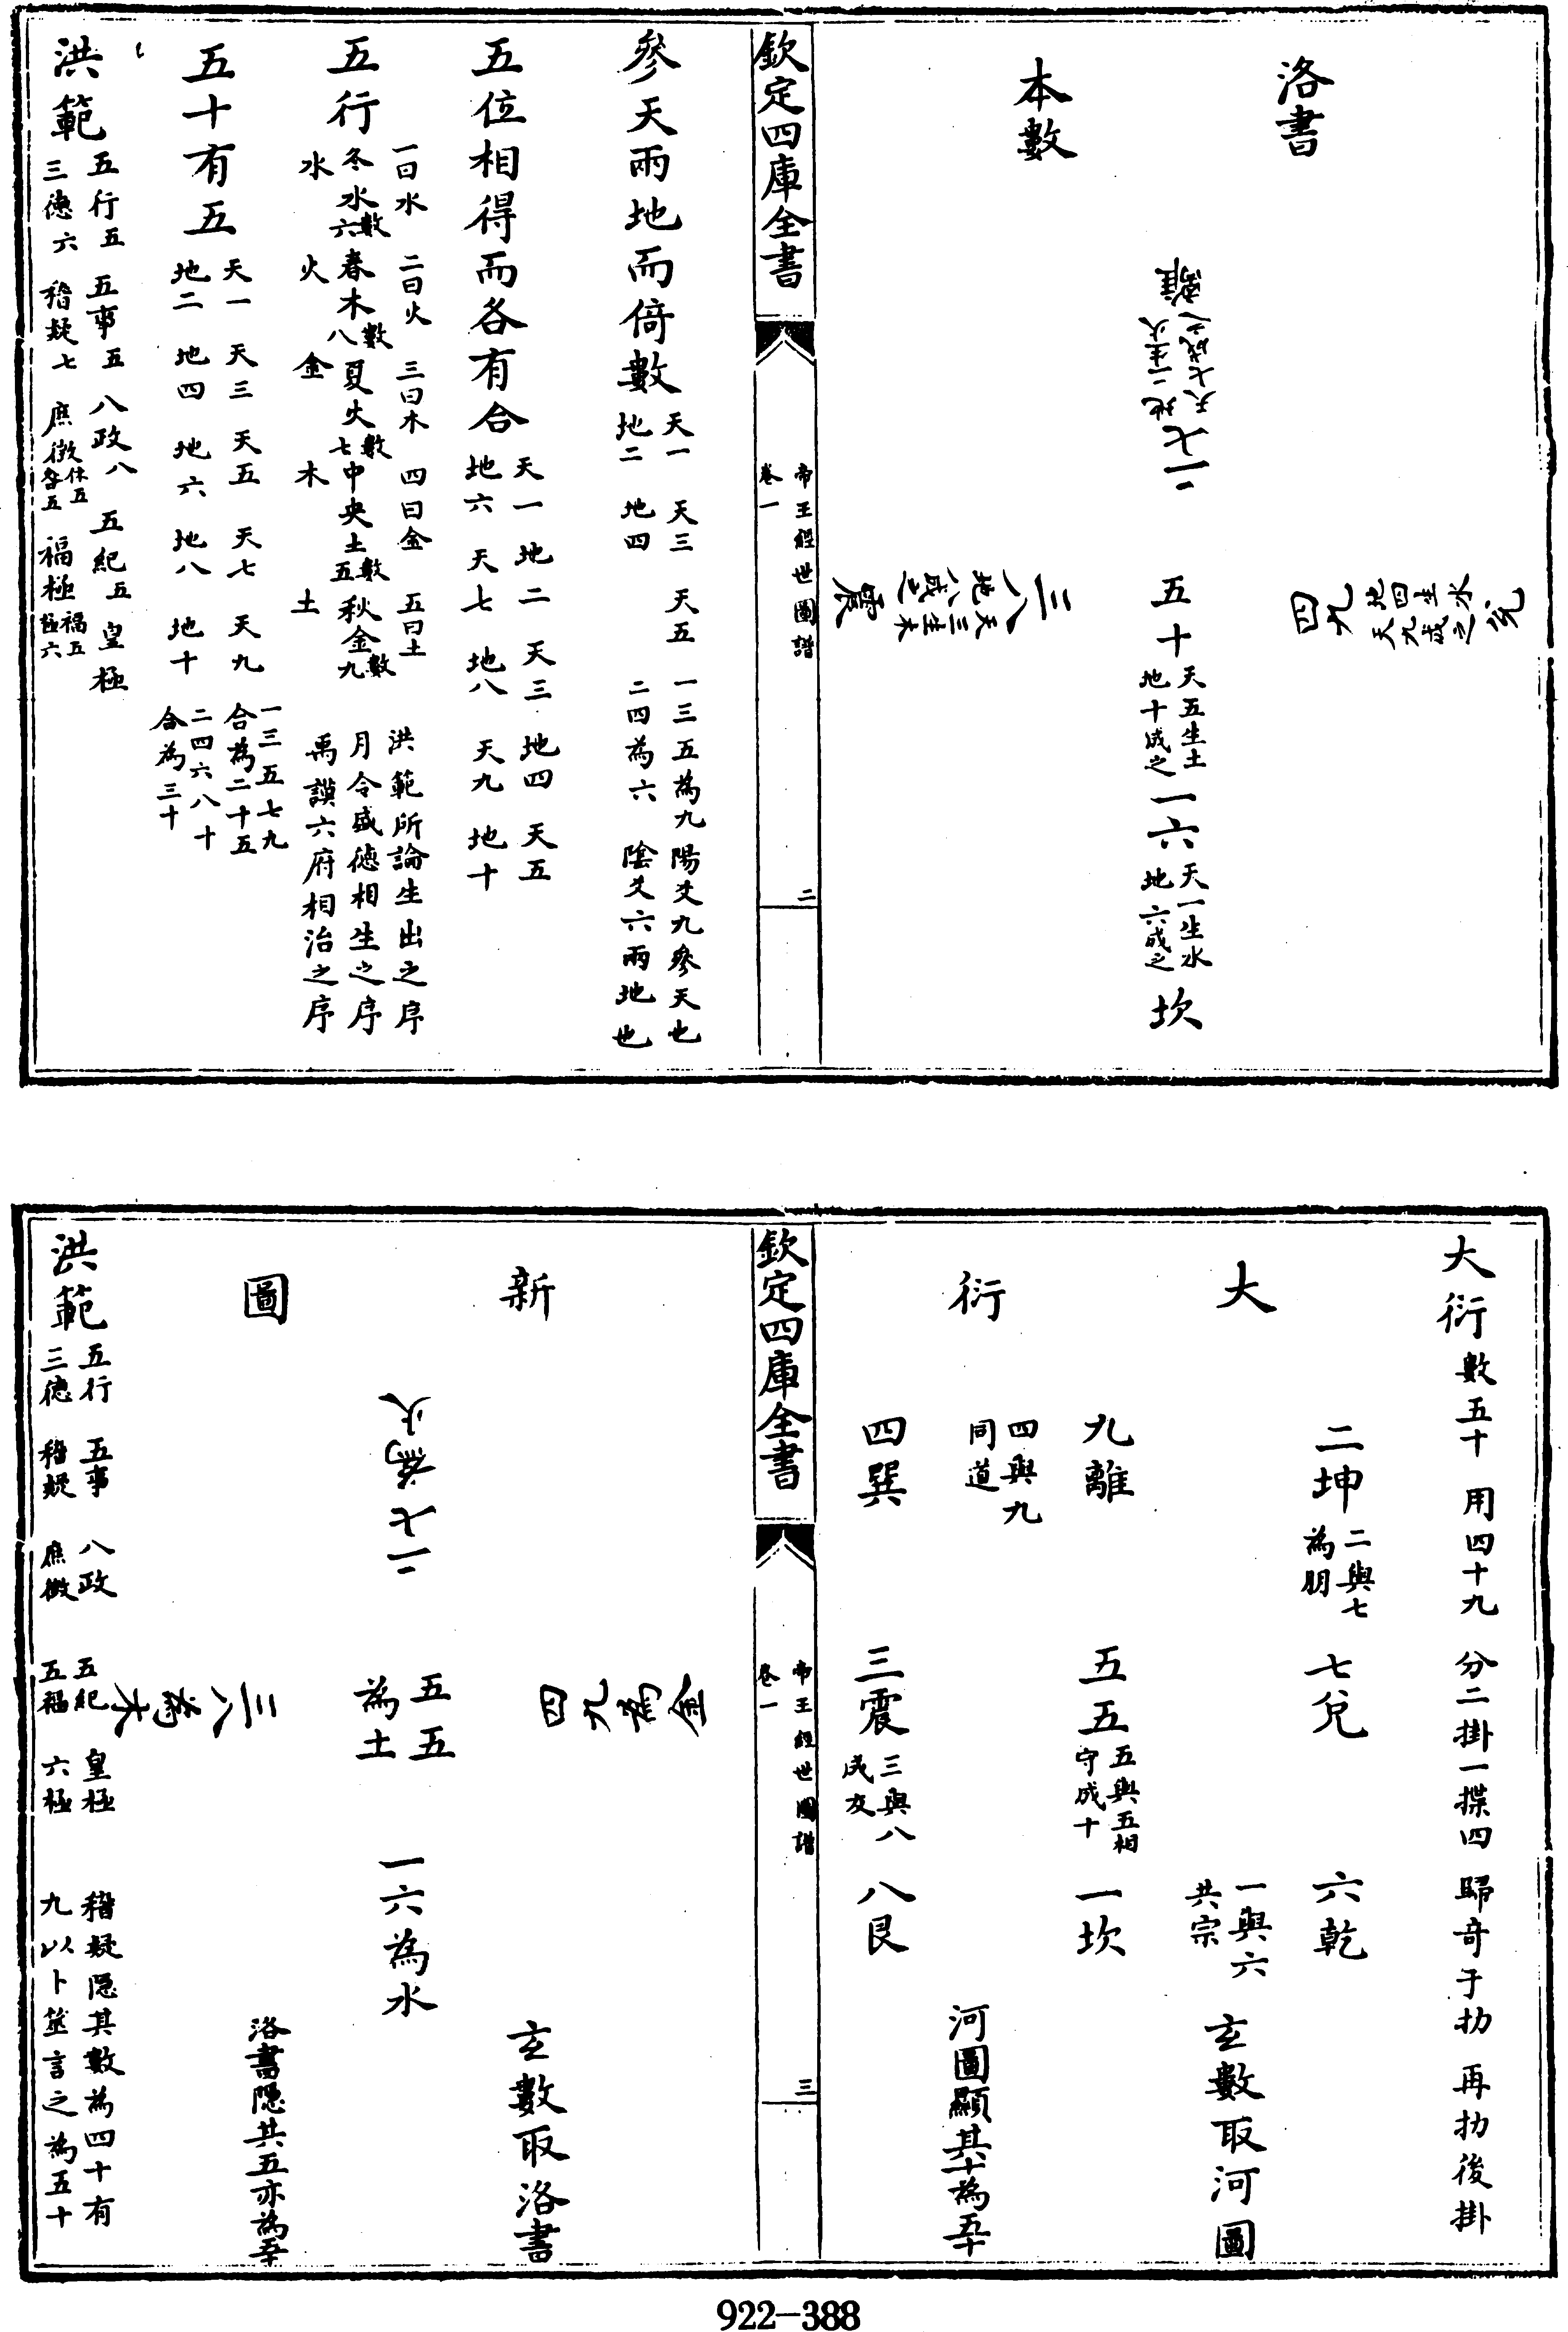 洛書
本數
離
地二生火
天七成之
二七
兌
地四生水
天九成之
四九
五十
天五生土
地十成之
一六
天一生水
地六成之
坎
三八
天三生木
地八成之
震
欽定四庫全書
帝王經世圖譜
卷一
二
參天兩地而倚數
天一 天三 天五
地二 地四
一三五為九陽爻九參天也
二四為六 陰爻六兩地也
五位相得而各有合
天一 地二 天三 地四 天五
地六 天七 地八 天九 地十
五行
一曰水 二曰火 三曰木 四曰金 五曰土
冬水數六 春木數八 夏火數七 中央土數五 秋金數九
水 火 金 木 土
洪範所論生出之序
月令盛德相生之序
禹謨六府相治之序
五十有五
天一 天三 天五 天七 天九
地二 地四 地六 地八 地十
一三五七九
合為二十五
二四六八十
合為三十
洪範
五行五 五事五 八政八 五紀五 皇極
三德六 稽疑七 庶徵休五咎五 福極福五極六
大衍數五十 用四十九 分二掛一揲四 歸奇于扐 再扐後掛
大
衍
二坤
二與七
為朋
七兌
六乾
一與六
共宗
九離
四與九
同道
五五
五與五相
守成十
一坎
四巽
三震
三與八
成友
八艮
玄數取河圖
河圖顯其十為五十
欽定四庫全書
帝王經世圖譜
卷一
三
新
圖
二七為火
四九為金
五五
為土
三八為木
一六為水
玄數取洛書
洛書隱其五亦為五十
洪範
五行 五事 八政 五紀 皇極 稽疑隱其數為四十有
三德 稽疑 庶徵 五福 六極 九以卜筮言之為五十
922-388